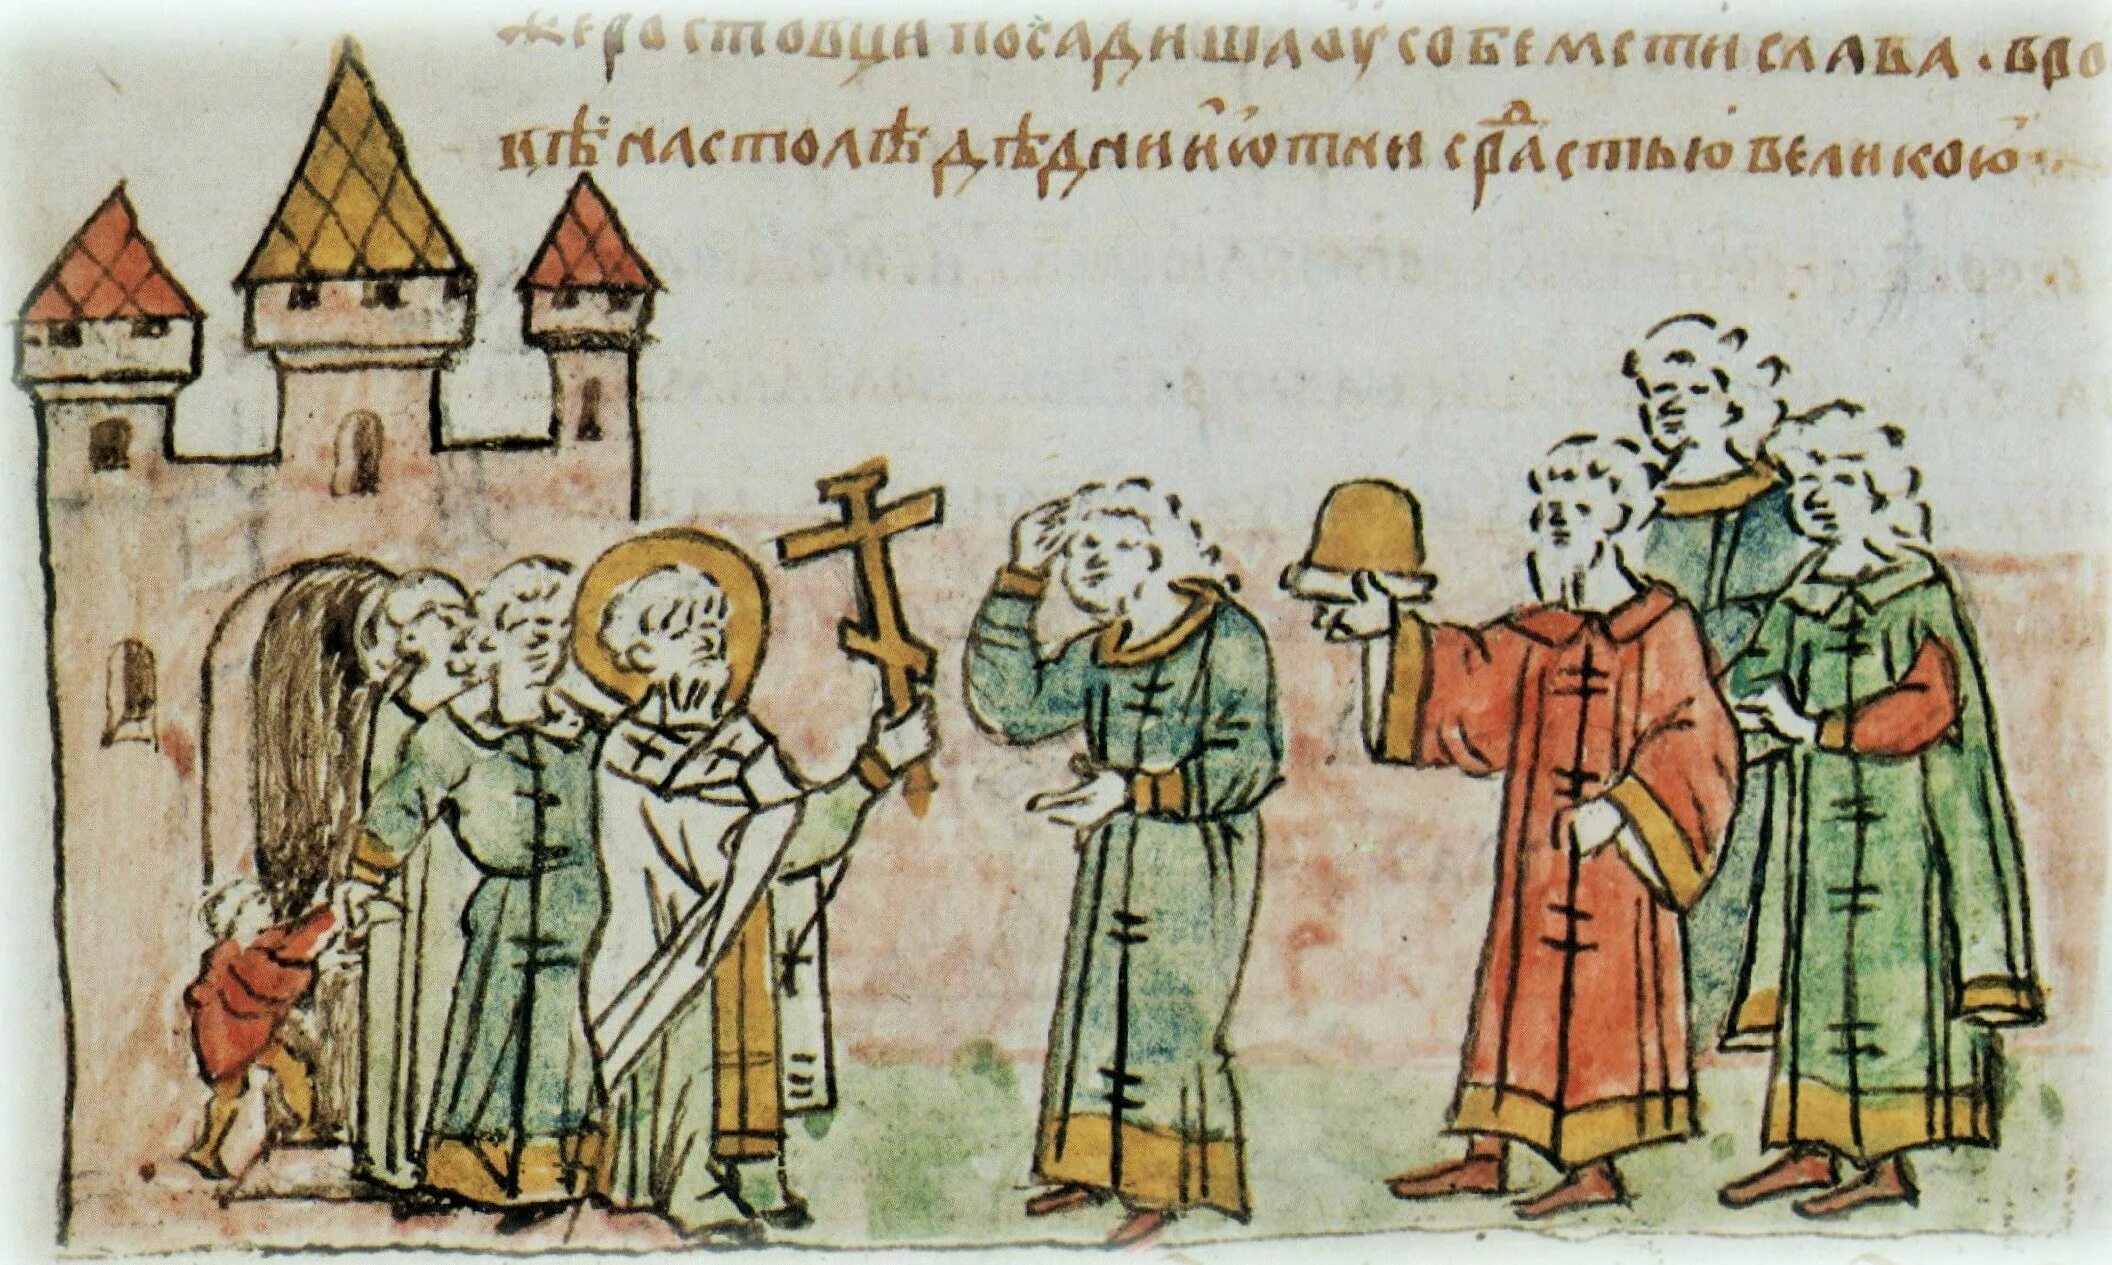 же ростовци посадиша оу собе мстислава . вро
кѣ на столѣ дѣдни и ѡтни с раⷣстью великою